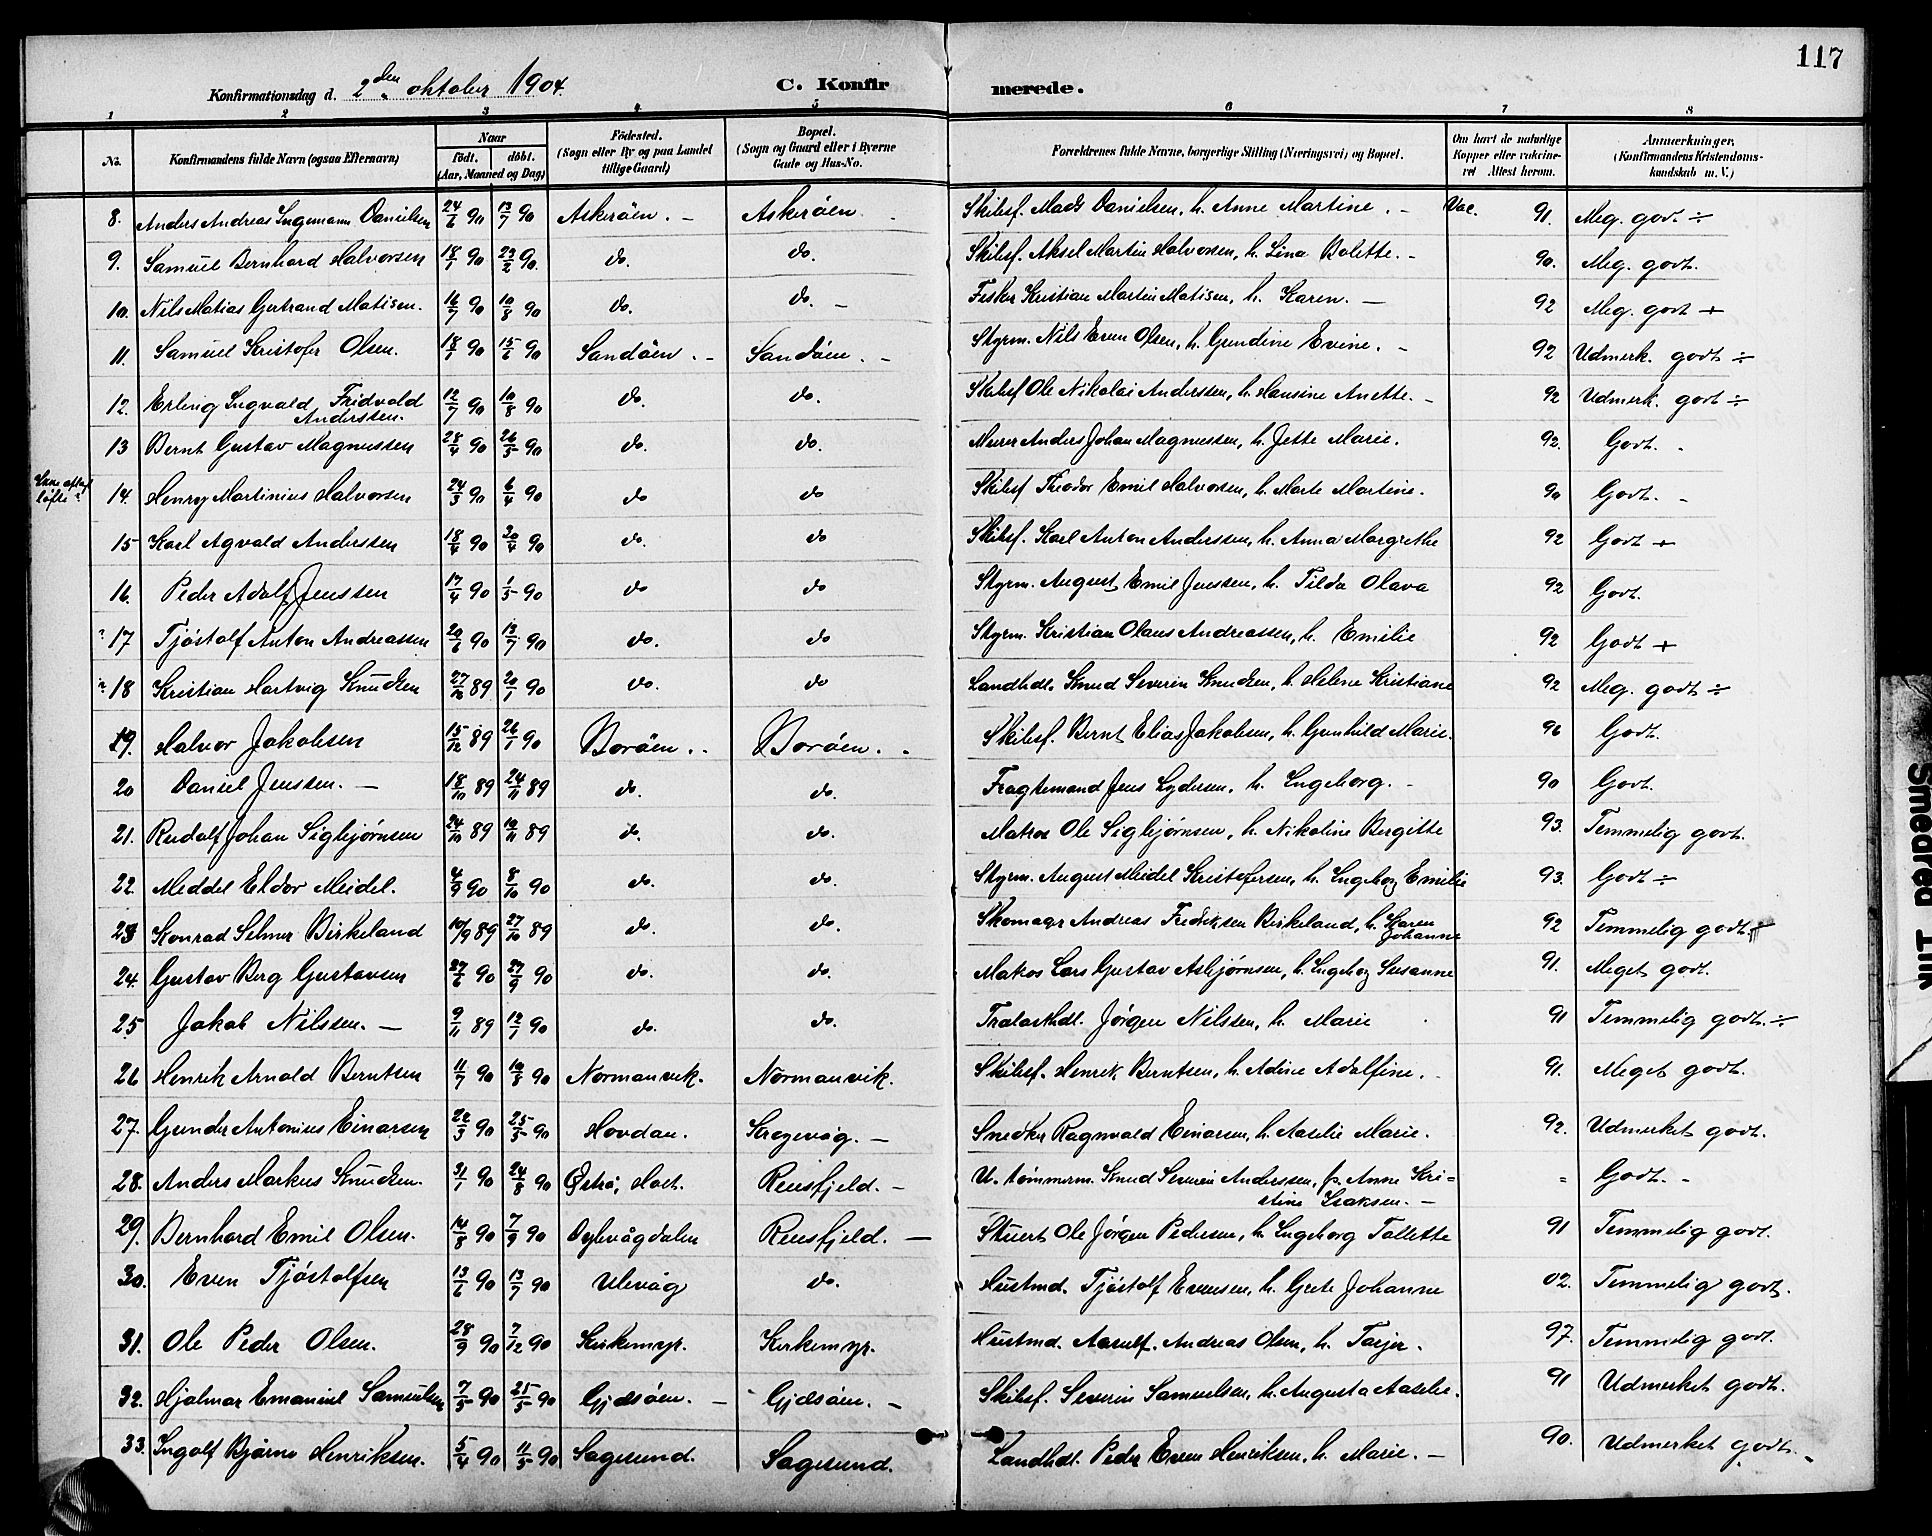 117
Konfirmationsdag d. 2den oktober 1904. C. Konfirmerede.
1 2 3 4 5 6 7 8
No. Konfirmandens fulde Navn (ogsaa Efternavn) Naar födt. döbt. (Aar, Maaned og Dag) Födested. (Sogn eller By og paa Landet tillige Gaard) Bopæl. (Sogn og Gaard eller i Byerne Gade og Hus-No. Forældrenes fulde Navne, borgerlige Stilling (Næringsvei) og Bopæl. Om havt de naturlige Kopper eller vakcineret Attest herom. Anmerkninger. (Konfirmandens Kristendomskundskab m. V.)
8. Anders Andreas Ingemann Danielsen 24/6 90 13/7 90 Askeröen. - Askeröen. Skibsf. Mads Danielsen, h. Anne Martine. - Vac. 91. Meg. godt ÷
9. Samuel Bernhard Halvorsen 18/1 90 23/2 90. do. do. Skibsf. Aksel Martin Halvorsen, h. Lina Bolette. - 90. Meg. godt.
10. Nils Matias Gertrand Matisen. 16/7 90 10/8 90 do. do. - Fisker Kristian Martin Matisen, h. Karen. - 92 Meg. godt +
11. Samuel Kristofer Olsen. 18/1 90 15/6 90 Sandöen. - Sandöen. - Styrm. Nils Even Olsen, h. Gundine Evine. - 92 Udmerk. godt ÷
12. Erling Ingvald Fridvald Anderssen. 12/7 90 10/8 90 do. do. Skibsf Ole Nikolai Anderssen, h. Hansine Anette. - 92 Udmerk. godt ÷
13 Bernt Gustav Magnussen 28/4 90 26/5 90 do. do. Murer Anders Johan Magnussen, h. Jette Marie. 92. Godt.
løfte 14. Henry Martinius Halvorsen 24/3 90 6/4 90 do do Skibsf Theodor Emil Halvorsen, h. Marte Martine. 90 Godt. -
15 Karl Agvald Anderssen 18/4 90 20/4 90 do. do Skibsf. Karl Anton Anderssen, h. Anna Margrethe 92 Godt +
16. Peder Adolf Jenssen 17/4 90 1/5 90 do do Styrm. August Emil Jenssen, h. Tilda Olava 92 Godt.
17 Tjöstolf Anton Andreassen 20/6 90 13/7 90 do. do Styrm. Kristian Olaus Andreassen, h. Emilie 92 Godt +
18 Kristian Hartvig Knudsen 27/10 89 20/1 90 do. do Landhdl. Knud Severin Knudsen, h. Helene Kristiane 92 Meg. godt ÷
19. Halvor Jakobsen 15/12 89 26/1 90 Boröen. . Boröen. . Skibsf. Bernt Elias Jakobsen, h. Gunhild Marie. 96 Godt.
20 Daniel Jenssen. - 18/10 89 24/11 89 do. do. Fragtemand Jens Lydersen, h. Ingeborg. - 90 Godt.
21. Rudolf Johan Sigbjørnsen 24/10 89 10/11 89 do. do. Matros Ole Sigbjørnsen, h. Nikoline Bergitte 93. Temmelig godt.
22. Meddel Eldor Meidel. 4/9 90 8/10 90 do. do. Styrm. August Meidel Kristofersen, h. Ingeborg Emilie 93. Godt ÷
23 Konrad Selmer Birkeland 10/9 89 27/10 89 do. do. Skomager Andreas Fredriksen Birkeland, h. Karen Johanne 92 Temmelig godt.
24. Gustav Berg Gustavsen 27/6 90 27/9 90 do. do. Matros Lars Gustav Asbjørnsen, h. Ingeborg Susanne 91. Meget godt.
25 Jakob Nilssen. - 9/11 89 12/1 90 do. do. Jörgen Nilssen, h. Marie 91 Temmelig godt. ÷
26 Henrik Arnold Berntsen 11/7 90 10/8 90 Normanvik. Normanvik. Skibsf. Henrik Berntsen, h. Adine Adolfine. 91. Meget godt.
27. Gunder Antonius Einarsen 22/3 90 25/5 90 Hovdan. Krogevåg. - Snedker Ragnvald Einarsen, h. Aaselie Marie. 92. Udmerket godt.
28. Anders Markus Knudsen. 31/1 90 24/8 90 Østrå, Holt. Reusfjeld. - U. tömmerm. Knud Severin Anderssen, p. Anne Kristine Isaksen. - " Godt. -
29. Bernhard Emil Olsen. 14/8 90 7/9 90 Dybvågdalen Reusfjeld. - Stuert Ole Jörgen Pedersen, h. Ingeborg Tollette 91 Temmelig godt.
30. Even Tjöstolfsen 13/6 90 13/7 90 Ulevåg do. Hustmd. Tjöstolf Evensen, h. Grete Johanne 02. Temmelig godt.
31. Ole Peder Olsen. 28/9 90 7/12 90 Kirkemyr. Kirkemyr. Hustmd. Aanulf. Andreas Olsen, h. Tarjer. 97. Temmelig godt.
32. Hjalmar Emanuel Samuelsen 7/5 90 25/5 90 Gjedsöen. - Gjedsöen. - Skibsf. Severin Samuelsen, h. Augusta Aaselie. 91 Udmerket godt.
33. Ingolf Bjarne Henriksen. 5/4 90 11/5 90 Sagesund. Sagesund. Landhdl. Peder Even Henriksen, h. Marie. - 90. Udmerket godt.
Smedred Trik